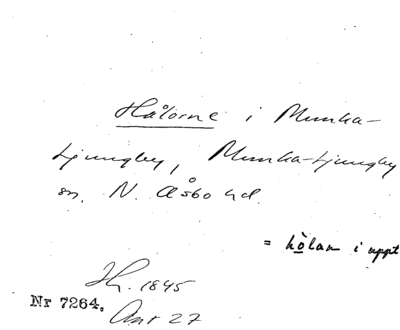 Hålorne i Munka-
Ljungby, Munka-Ljungby
sn, N. Åsbo hd.
= hòlan i uppt
Jh. 1845
Nr 7264. Ant 27